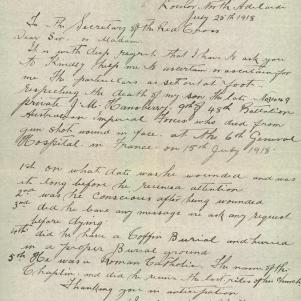 North Adelaide
July 25th 1918
To the Secretary of the Red Cross
Dear Sir or Madam
It is with deep regret that I have to ask you
to kindly help me to ascertain or ascertain for
me the particulars as set out at foot
Respecting the death of my son the late
private J. M. Hansberry 9th of 48th Battalion
Australian Imperial Forces who died from
gun shot wound in face at the 6th General
Hospital in France on 15th July 1918.
1st on what date was he wounded and was
it long before he received attention
2nd was he Conscious after being wounded
3rd did he leave any message or ask any request
before dying
4th did he have a Coffin Burial and buried
in a proper Burial ground
5th He was a Roman Catholic. The name of the
Chaplin and did he receive the last rites of his Church
Thanking you in anticipation